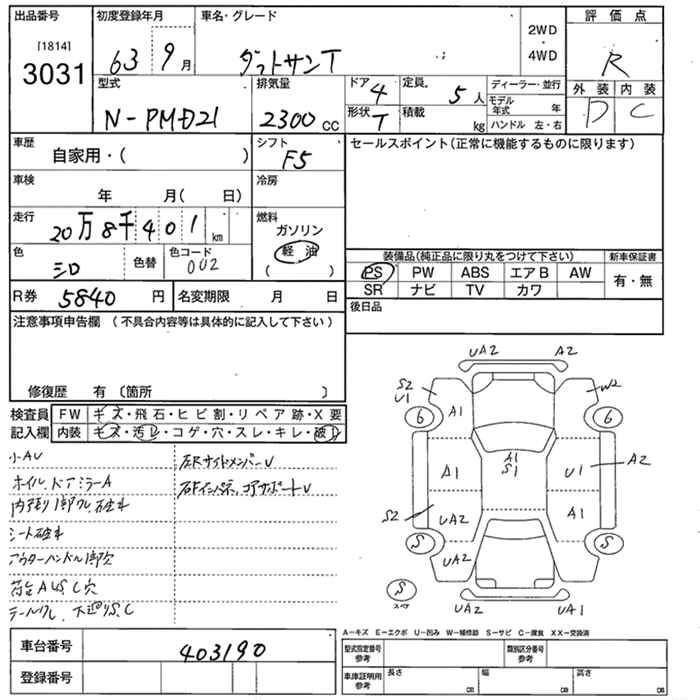 出品番号 初度登録年月 車名・グレード 評価点
[1814] 3031 63 9月 ダットサンT 2WD・4WD R
型式 排気量 ドア 4 定員 5人 ディーラー・並行 外装 内装
N-PMD21 2300cc 形状 T 積載 kg モデル年式 年 D C
ハンドル 左・右
車歴 シフト セールスポイント(正常に機能するものに限ります)
自家用・( ) F5
車検 冷房
年 月( 日)
走行 燃料
20万8千401km ガソリン
軽油
( )
色 色替 色コード 装備品(純正品に限り丸をつけて下さい) 新車保証書
シロ 002 PS PW ABS エアB AW 有・無
SR ナビ TV カワ
R券 5840円 名変期限 月 日 後日品
注意事項申告欄 (不具合内容等は具体的に記入して下さい)
修復歴 有 (箇所 )
検査員 FW キズ・飛石・ヒビ割・リペア跡・X要
記入欄 内装 キズ・汚レ・コゲ・穴・スレ・キレ・破レ
小AU 左RサイドメンバーU
ホイル、ドアミラーA 左Fインパネ、コアサポートU
シート破れ
アウターハンドル1部欠
荷台AUS、C穴
テールワレ、下廻りS、C
UA2 A2
S2 U1 W2
6 A1 6
A1 S1
A1 U1 A2
S2 UA2 A1
S S
UA2
S スペア
UA2 UA1
A-キズ E-エクボ U-凹み W-補修跡 S-サビ C-腐食 XX-交換済
車台番号 403190 型式指定番号 参考 類別区分番号 参考
登録番号 車庫証明用 参考 長さ cm 幅 cm 高さ cm